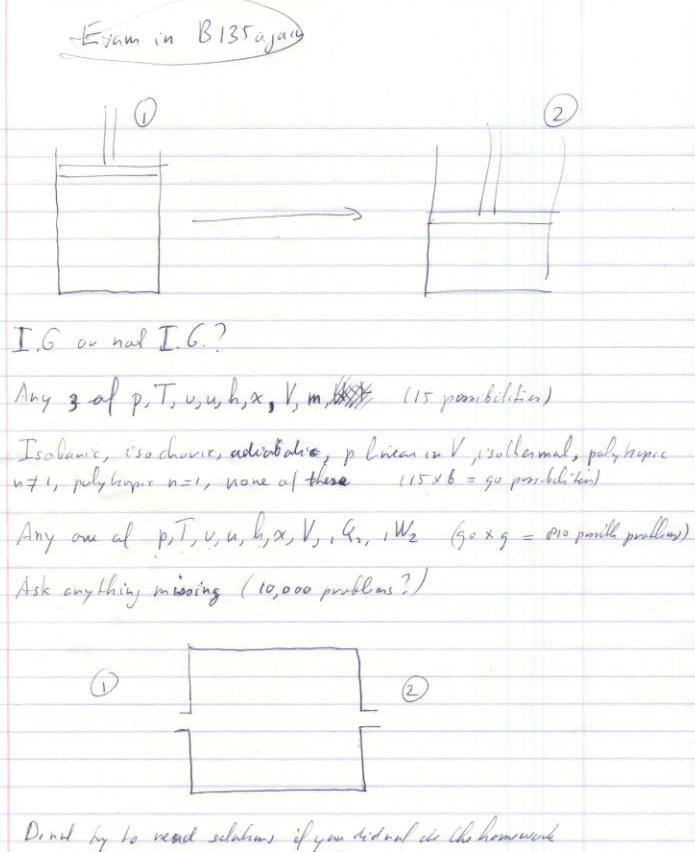 Exam in B135 again
1
2
I.G or not I.G.?
Any 3 of p, T, v, u, h, x, V, m, (15 possibilities)
Isobaric, isochoric, adiabatic, p linear in V, isothermal, polytropic
n≠1, polytropic n=1, none of these (15 x 6 = 90 possibilities)
Any one of p, T, v, u, h, x, V, ₁Q₂, ₁W₂ (90 x 9 = 810 possible problems)
Ask anything missing (10,000 problems?)
1
2
Do not try to read solutions if you did not do the homework